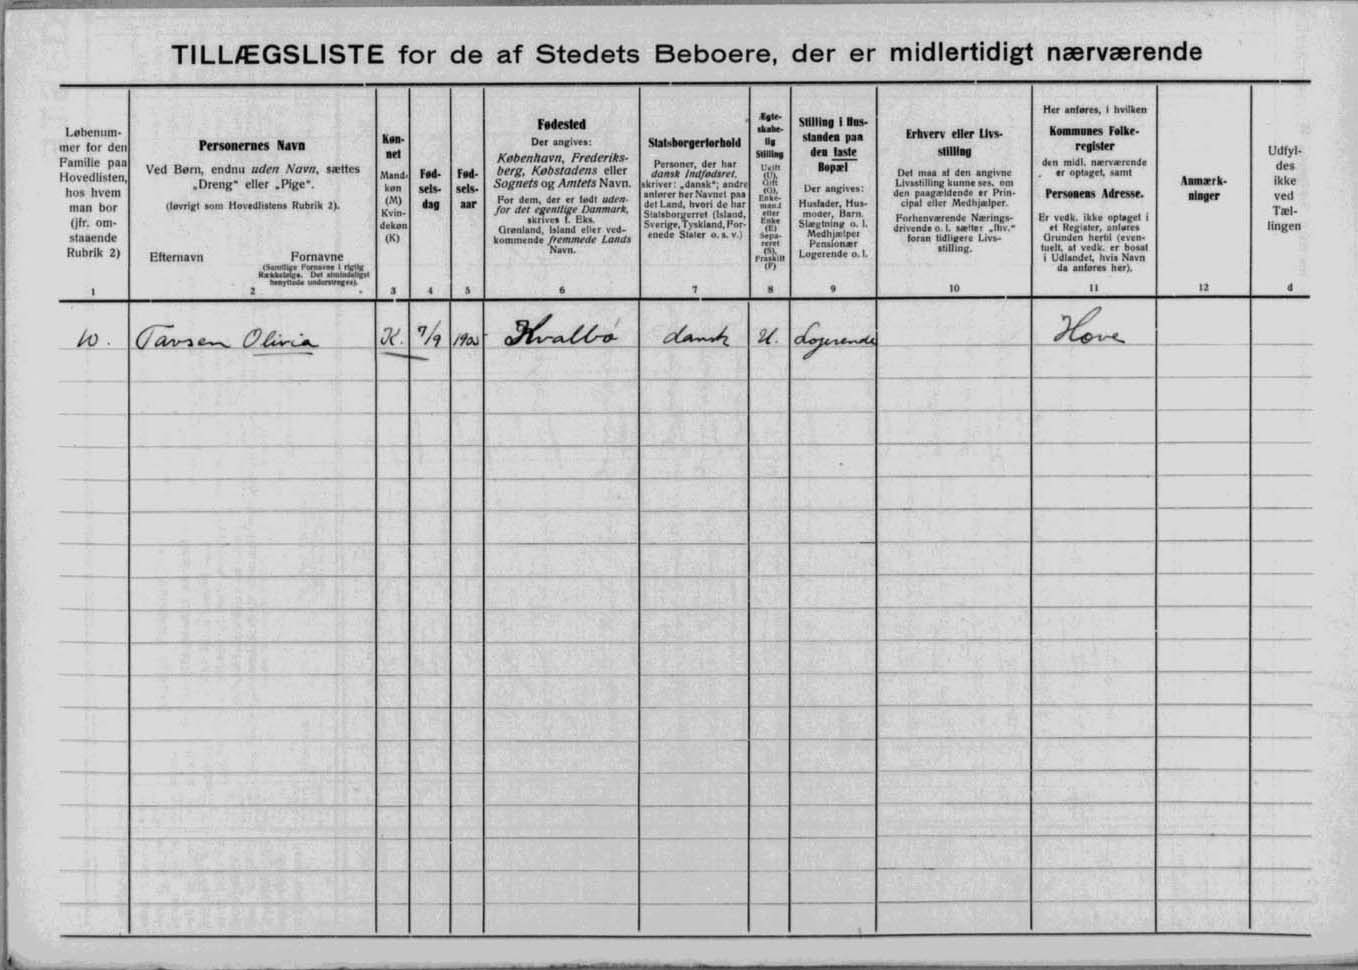 TILLÆGSLISTE for de af Stedets Beboere, der er midlertidigt nærværende
Løbenum-
mer for den
Familie paa
Hovedlisten,
hos hvem
man bor
(jfr. om-
staaende
Rubrik 2)
1
Personernes Navn
Ved Børn, endnu uden Navn, sættes
„Dreng“ eller „Pige“.
(Iøvrigt som Hovedlistens Rubrik 2).
Efternavn Fornavne
(Samtlige Fornavne i rigtig
Rækkefølge. Det almindeligst
benyttede understreges).
2
Køn-
net
Mand-
køn
(M)
Kvin-
dekøn
(K)
3
Fød-
sels-
dag
4
Fød-
sels-
aar
5
Fødested
Der angives:
København, Frederiks-
berg, Købstadens eller
Sognets og Amtets Navn.
For dem, der er født uden-
for det egentlige Danmark,
skrives f. Eks.
Grønland, Island eller ved-
kommende fremmede Lands
Navn.
6
Statsborgerforhold
Personer, der har
dansk Indfødsret,
skriver: „dansk“; andre
anfører her Navnet paa
det Land, hvori de har
Statsborgerret (Island,
Sverige, Tyskland, For-
enede Stater o. s. v.)
7
Ægte-
skabe-
lig
Stilling
Ugift
(U),
Gift
(G),
Enke-
mand
eller
Enke
(E)
Sepa-
reret
(S),
Fraskilt
(F)
8
Stilling i Hus-
standen paa
den faste
Bopæl
Der angives:
Husfader, Hus-
moder, Barn,
Slægtning o. l.
Medhjælper
Pensionær
Logerende o. l.
9
Erhverv eller Livs-
stilling
Det maa af den angivne
Livsstilling kunne ses, om
den paagældende er Prin-
cipal eller Medhjælper.
Forhenværende Nærings-
drivende o. l. sætter „fhv.“
foran tidligere Livs-
stilling.
10
Her anføres, i hvilken
Kommunes Folke-
register
den midl. nærværende
er optaget, samt
Personens Adresse.
Er vedk. ikke optaget i
et Register, anføres
Grunden hertil (even-
tuelt, at vedk. er bosat
i Udlandet, hvis Navn
da anføres her).
11
Anmærk-
ninger
12
Udfyl-
des
ikke
ved
Tæl-
lingen
d
10. Tavsen Olivia K. 7/9 1905 Kvalbø dansk U. Logerende Hove